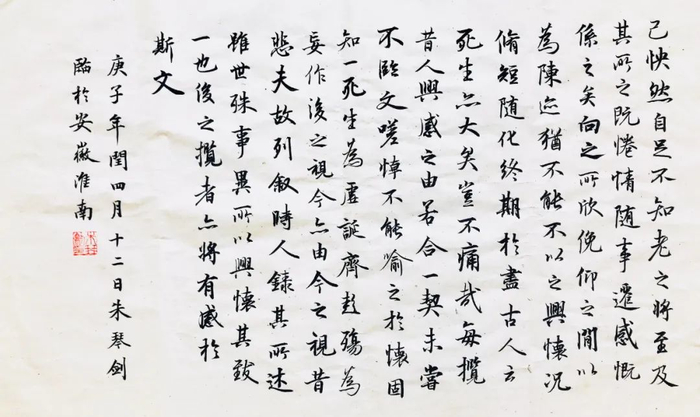 己快然自足不知老之將至及
其所之既惓情隨事遷感慨
係之矣向之所欣俛仰之閒以
為陳迹猶不能不以之興懷況
脩短隨化終期於盡古人云
死生亦大矣豈不痛哉每攬
昔人興感之由若合一契未嘗
不臨文嗟悼不能喻之於懷固
知一死生為虛誕齊彭殤為
妄作後之視今亦由今之視昔
悲夫故列敘時人錄其所述
雖世殊事異所以興懷其致
一也後之攬者亦將有感於
斯文
庚子年閏四月十二日朱琴劍
臨於安徽淮南